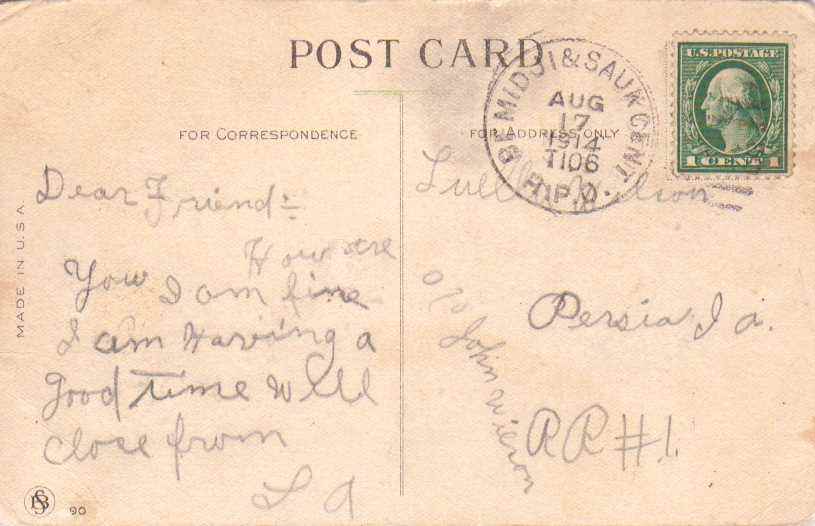 POST CARD
FOR CORRESPONDENCE
FOR ADDRESS ONLY
U.S. POSTAGE
1 CENT 1
BEMIDJI & SAUK CENT
AUG
17
1914
T106
R.P.O.
Dear Friend:-
How are
You I am fine
I am Having a
good time Will
close from
L A
Wilson
c/o John Wilson
Persia Ia.
RR#1.
MADE IN U.S.A.
SB
90